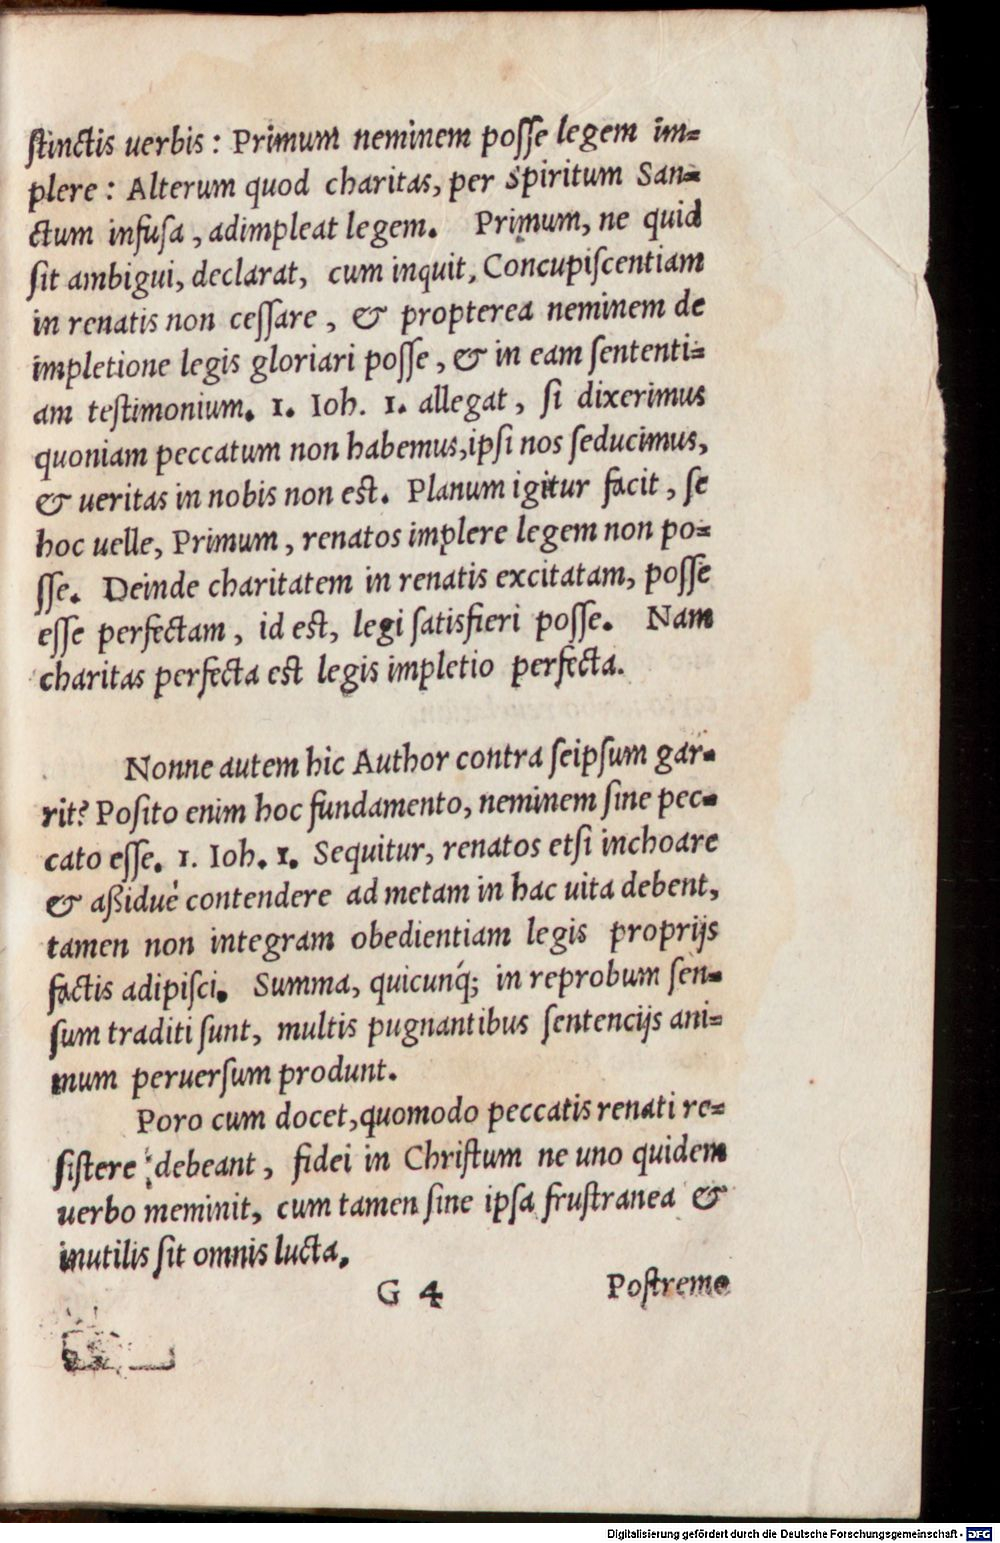 ſtinctis uerbis: Primum neminem poſſe legem im=
plere: Alterum quod charitas, per Spiritum San=
ctum infuſa, adimpleat legem. Primum, ne quid
ſit ambigui, declarat, cum inquit, Concupiſcentiam
in renatis non ceſſare, & propterea neminem de
impletione legis gloriari poſſe, & in eam ſententi=
am teſtimonium. 1. Ioh. 1. allegat, ſi dixerimus
quoniam peccatum non habemus, ipſi nos ſeducimus,
& ueritas in nobis non eſt. Planum igitur facit, ſe
hoc uelle, Primum, renatos implere legem non po=
ſſe. Deinde charitatem in renatis excitatam, poſſe
eſſe perfectam, id eſt, legi ſatisfieri poſſe. Nam
charitas perfecta eſt legis impletio perfecta.
Nonne autem hic Author contra ſeipſum gar=
rit? Poſito enim hoc fundamento, neminem ſine pec=
cato eſſe. 1. Ioh. 1. Sequitur, renatos etſi inchoare
& aßiduè contendere ad metam in hac uita debent,
tamen non integram obedientiam legis proprijs
factis adipiſci. Summa, quicunq́; in reprobum ſen=
ſum traditi ſunt, multis pugnantibus ſentencijs ani=
mum peruerſum produnt.
Poro cum docet, quomodo peccatis renati re=
ſiſtere debeant, fidei in Chriſtum ne uno quidem
uerbo meminit, cum tamen ſine ipſa fruſtranea &
inutilis ſit omnis lucta.
G 4 Poſtremo
Digitalisierung gefördert durch die Deutsche Forschungsgemeinschaft - DFG